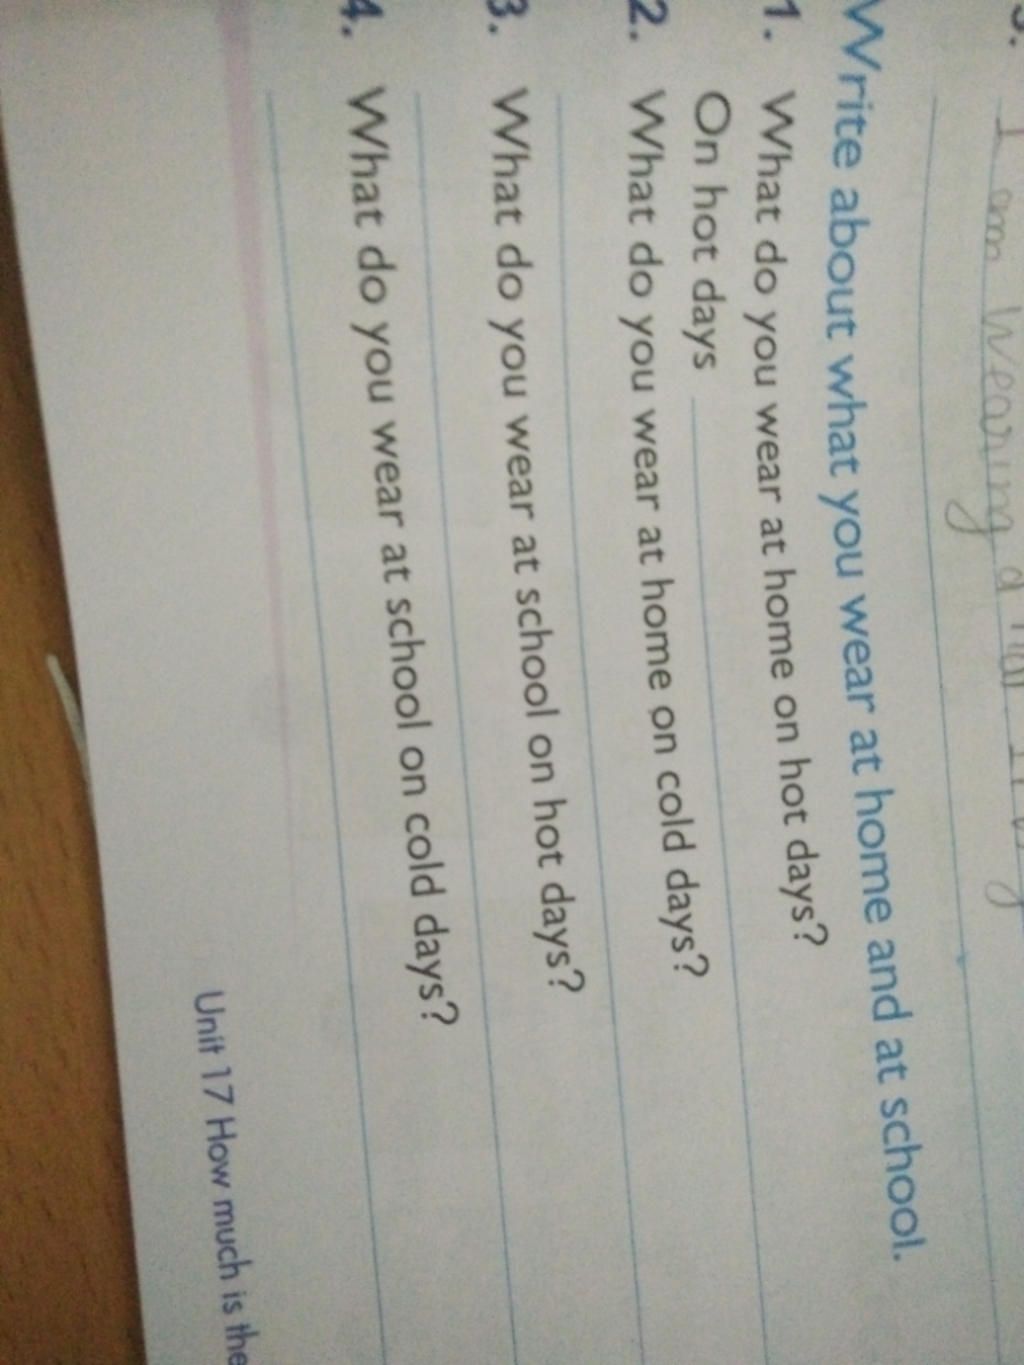 I am wearing a
Write about what you wear at home and at school.
1. What do you wear at home on hot days?
On hot days
2. What do you wear at home on cold days?
3. What do you wear at school on hot days?
4. What do you wear at school on cold days?
Unit 17 How much is the